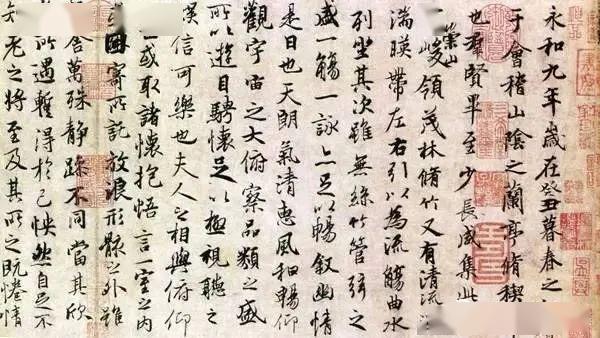 永和九年歲在癸丑暮春之
于會稽山陰之蘭亭脩禊
也羣賢畢至少長咸集此
崇山峻領茂林脩竹又有清流
湍暎帶左右引以為流觴曲水
列坐其次雖無絲竹管弦之
盛一觴一詠亦足以暢敘幽情
是日也天朗氣清惠風和暢仰
觀宇宙之大俯察品類之盛
所以遊目騁懷足以極視聽之
娛信可樂也夫人之相與俯仰
或取諸懷抱悟言一室之內
或因寄所託放浪形骸之外雖
舍萬殊靜躁不同當其欣
所遇暫得於己怏然自足不
知老之將至及其所之既惓情